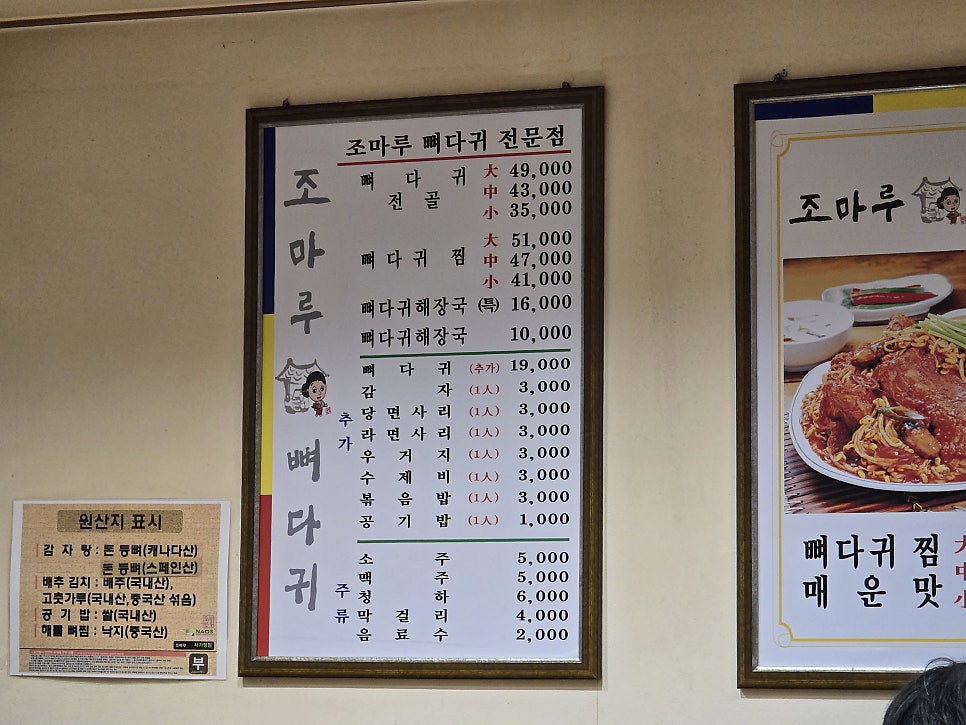 조마루 뼈다귀 전문점
조마루뼈다귀
뼈다귀전골 大 49,000
中 43,000
小 35,000
뼈다귀찜 大 51,000
中 47,000
小 41,000
뼈다귀해장국 (특) 16,000
뼈다귀해장국 10,000
추가
뼈다귀 (추가) 19,000
감자 (1人) 3,000
당면사리 (1人) 3,000
라면사리 (1人) 3,000
우거지 (1人) 3,000
수제비 (1人) 3,000
볶음밥 (1人) 3,000
공기밥 (1人) 1,000
주류
소주 5,000
맥주 5,000
청하 6,000
막걸리 4,000
음료수 2,000
원산지 표시
감자탕 : 돈 등뼈(캐나다산)
돈 등뼈(스페인산)
배추 김치 : 배추(국내산),
고춧가루(국내산,중국산 섞음)
공기밥 : 쌀(국내산)
해물 뼈찜 : 낙지(중국산)
NAQS
부
조마루
뼈다귀찜 大
매운맛 中
小